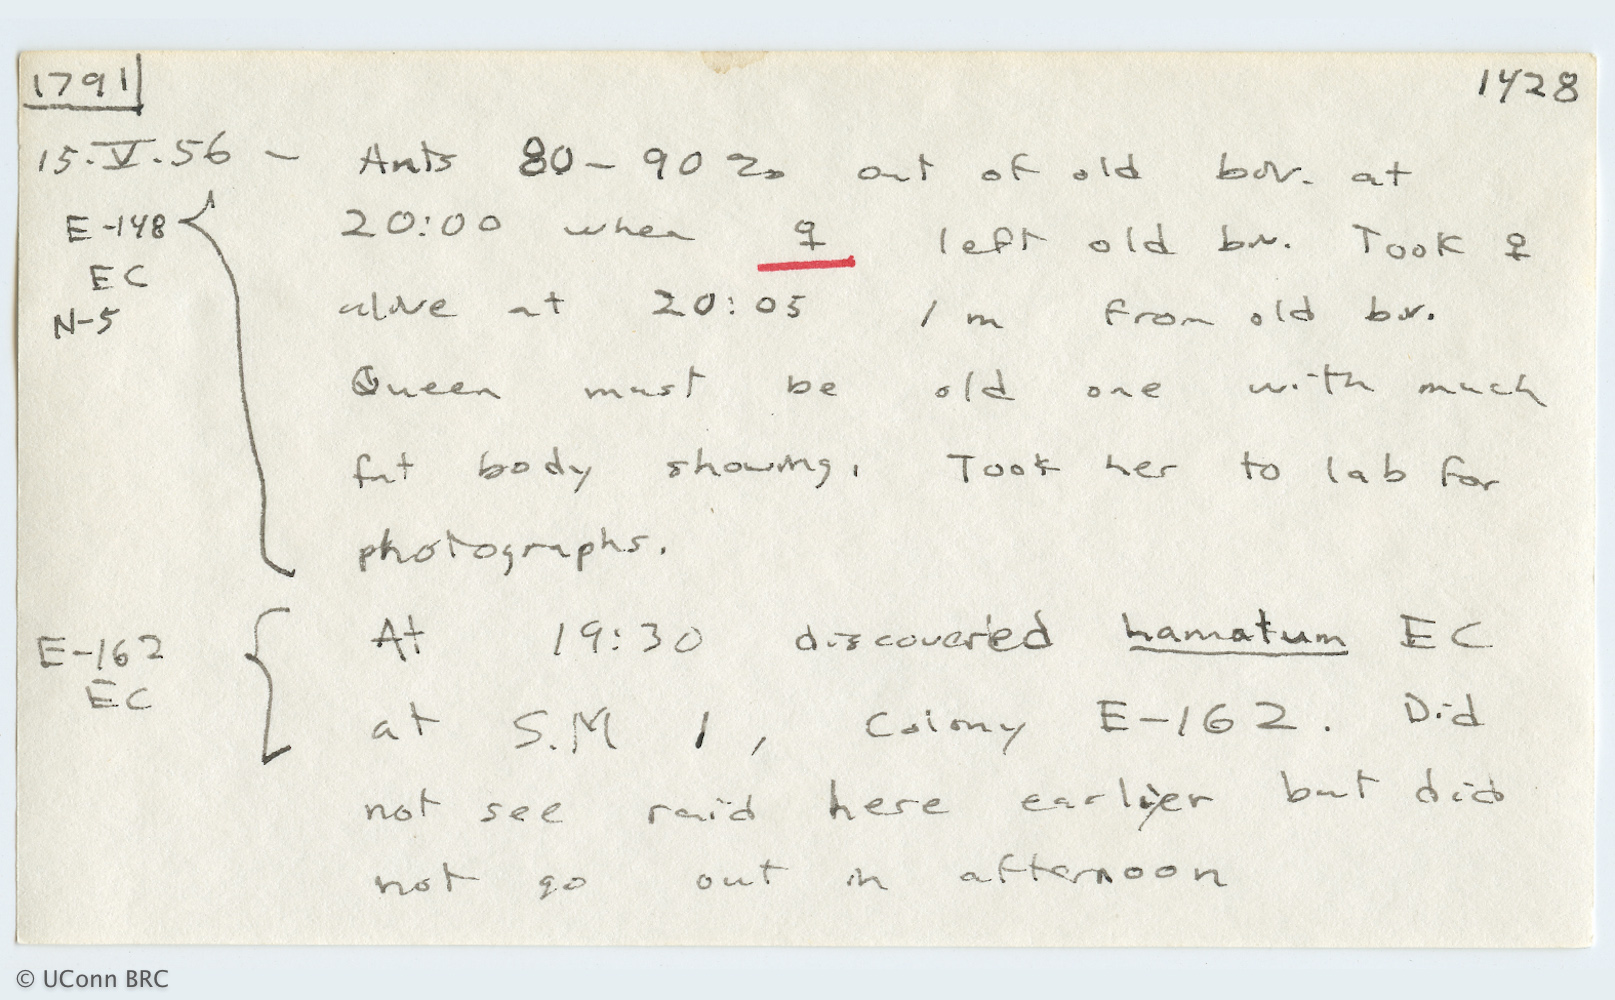 1791
1428
15.V.56 — Ants 80-90% out of old biv. at
E-148 20:00 when ♀ left old biv. Took ♀
EC
N-5 alive at 20:05 1 m from old biv.
Queen must be old one with much
fat body showing. Took her to lab for
photographs.
E-162 At 19:30 discovered hamatum EC
EC at S.M 1, Colony E-162. Did
not see raid here earlier but did
not go out in afternoon
© UConn BRC